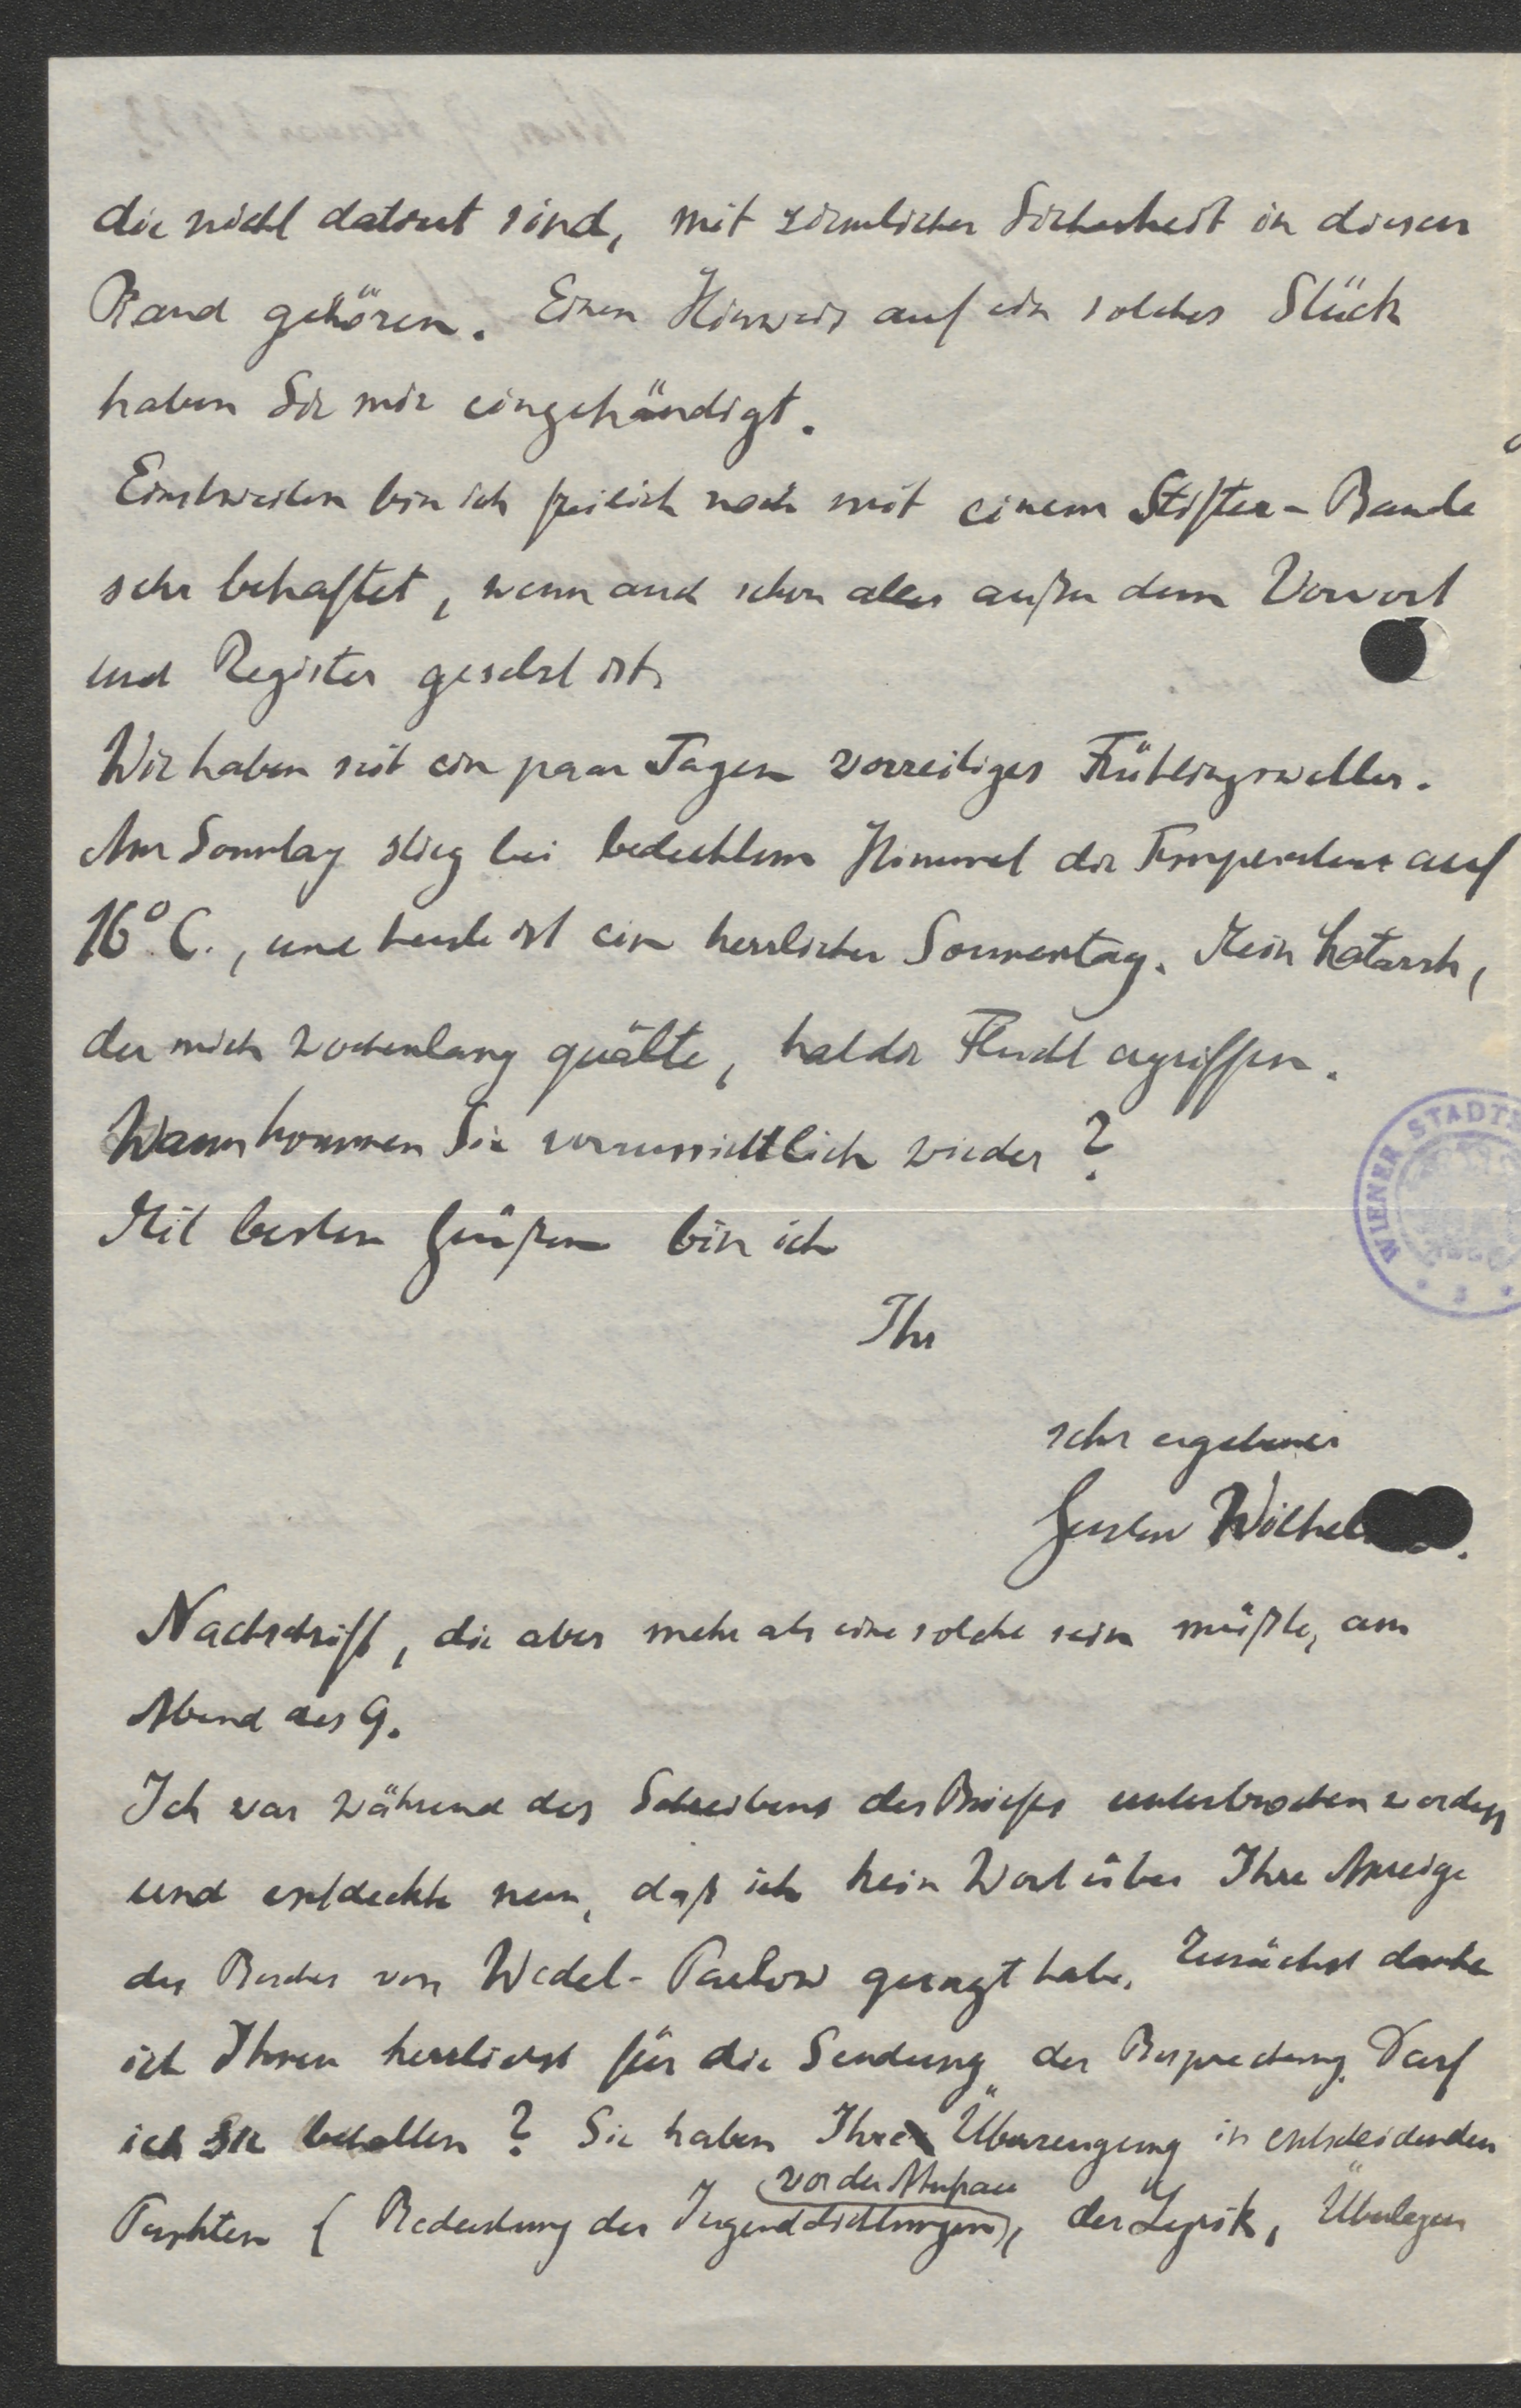 die nicht datiert sind, mit ziemlicher Sicherheit in diesen
Band gehören. Einen Hinweis auf ein solches Stück
haben Sie mir eingehändigt.
Einstweilen bin ich freilich noch mit einem Stifter-Bande
sehr behaftet, wenn auch schon alles außer dem Vorwort
und Register gesetzt ist.
Wir haben seit ein paar Tagen vorzeitiges Frühlingswetter.
Am Sonntag stieg bei bedecktem Himmel die Temperatur auf
16° C., und heute ist ein herrlicher Sonnentag. Mein Katarrh,
der mich wochenlang quälte, hat die Flucht ergriffen.
Wann kommen Sie voraussichtlich wieder?
Mit besten Grüßen bin ich
Ihr
sehr ergebener
Gustav Wilhel
WIENER STADT
Nachschrift, die aber mehr als eine solche sein müßte, am
Abend des 9.
Ich war während des Schreibens des Briefes unterbrochen worden
und entdeckte nun, daß ich kein Wort über Ihre Anzeige
des Buches von Wedel-Parlow gesagt habe. Zunächst danke
ich Ihnen herzlichst für die Sendung der Besprechung. Darf
ich sie behalten? Sie haben Ihre Überzeugung in entscheidenden
vor der Ahnfrau
Punkten (Bedeutung der Jugenddichtungen), der Lyrik, Überlegen